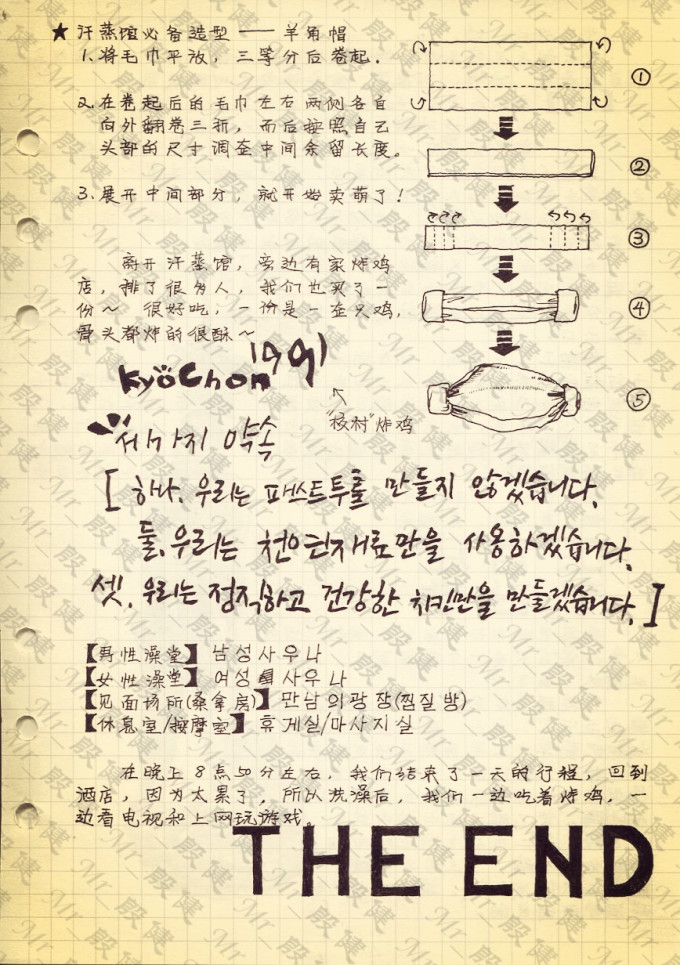 ★ 汗蒸馆必备造型 —— 羊角帽
1. 将毛巾平放，三等分后卷起.
2. 在卷起后的毛巾左右两侧各自
向外翻卷三折，而后按照自己
头部的尺寸调整中间余留长度。
3. 展开中间部分，就开始卖萌了！
①
②
③
④
⑤
离开汗蒸馆，旁边有家炸鸡
店，排了很多人，我们也买了一
份～ 很好吃，一份是一整只鸡，
骨头都炸的很酥～
KyoChon 1991
"校村"炸鸡
세가지 약속
[ 하나. 우리는 패스트푸드를 만들지 않겠습니다.
둘. 우리는 천연원재료만을 사용하겠습니다.
셋. 우리는 정직하고 건강한 치킨만을 만들겠습니다. ]
【男性澡堂】 남성사우나
【女性澡堂】 여성사우나
【见面场所(桑拿房)】 만남의광장(찜질방)
【休息室/按摩室】 휴게실/마사지실
在晚上8点50分左右，我们结束了一天的行程，回到
酒店，因为太累了，所以洗澡后，我们一边吃着炸鸡，一
边看电视和上网玩游戏。
THE END
Mr_殷健